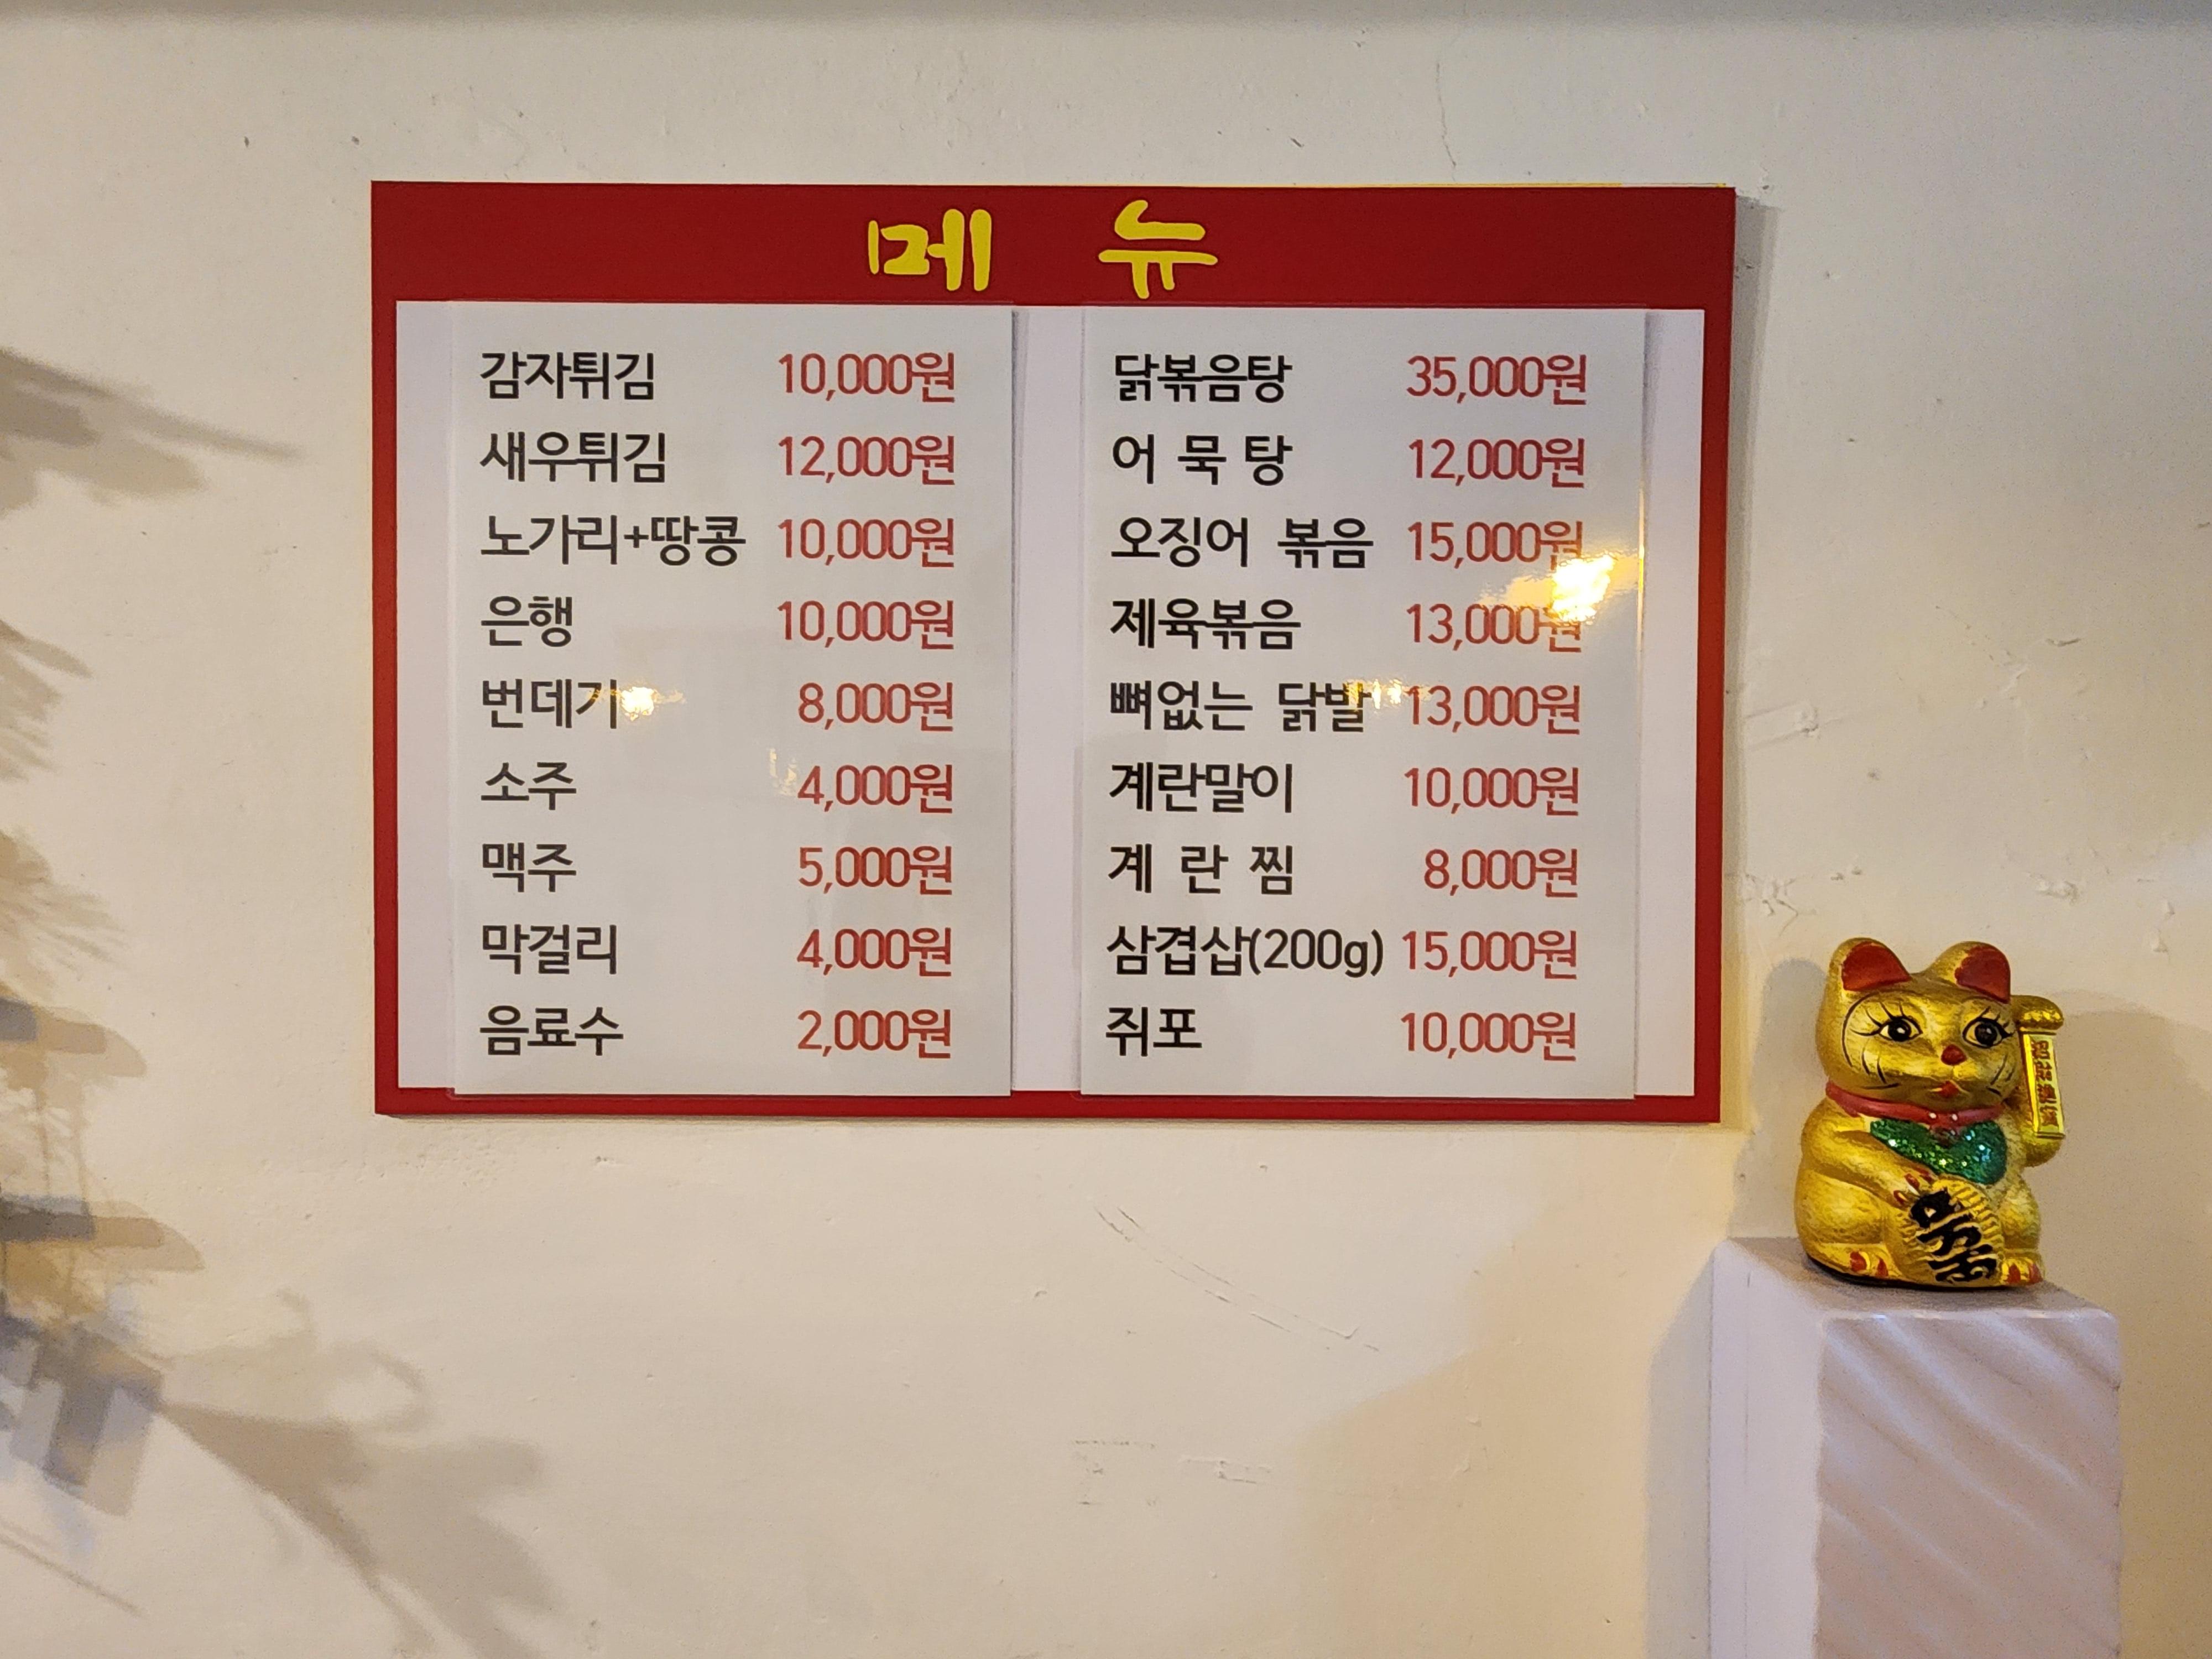 메 뉴
감자튀김 10,000원
새우튀김 12,000원
노가리+땅콩 10,000원
은행 10,000원
번데기 8,000원
소주 4,000원
맥주 5,000원
막걸리 4,000원
음료수 2,000원
닭볶음탕 35,000원
어 묵 탕 12,000원
오징어 볶음 15,000원
제육볶음 13,000원
뼈없는 닭발 13,000원
계란말이 10,000원
계 란 찜 8,000원
삼겹삽(200g) 15,000원
쥐포 10,000원